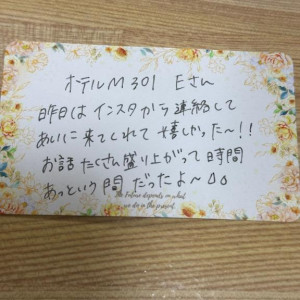 ホテルM 301 Eさん
昨日はインスタから連絡して
あいに来てくれて嬉しかった〜!!
お話たくさん盛り上がって時間
あっという間だったよ〜△△
The future depends on what
we do in the present.